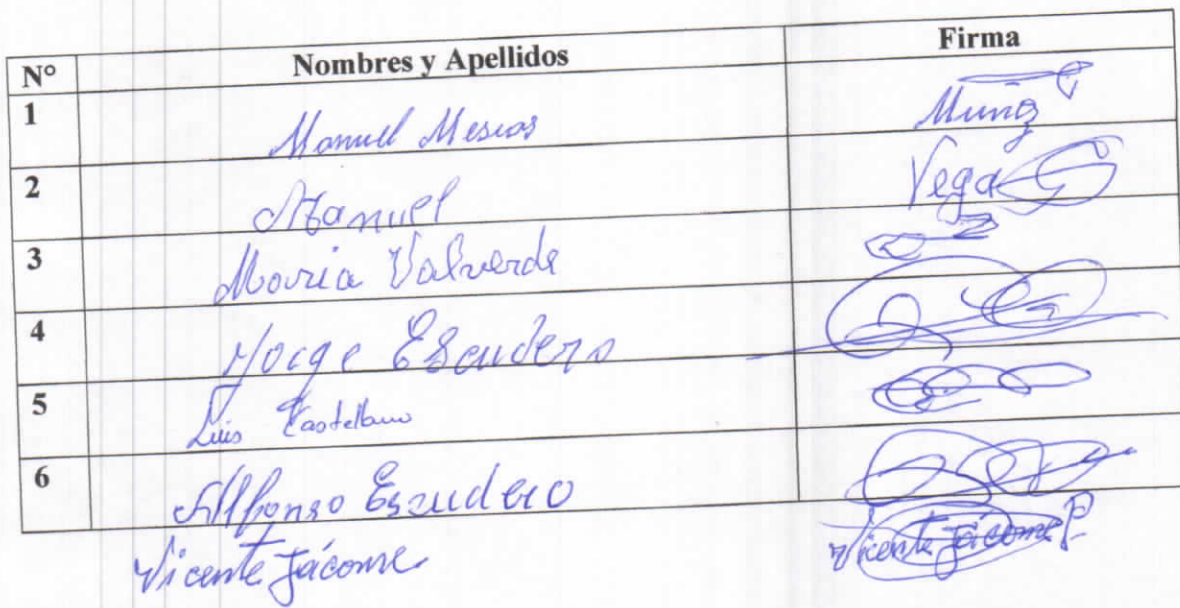 N° Nombres y Apellidos Firma
1 Manuel Mesias Muñoz
2 Manuel Vega
3 Maria Valverde
4 Jorge Escudero
5 Luis Castellano
6 Alfonso Escudero
Vicente Jácome Vicente Jácome P.